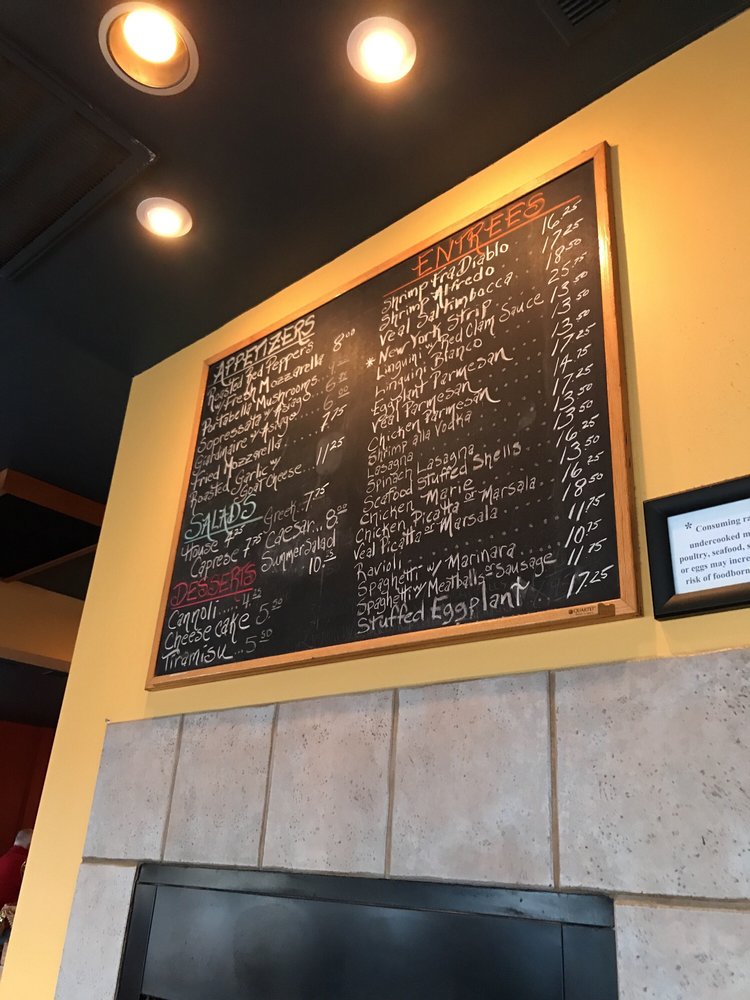 APPETIZERS
Roasted Red Peppers
w/ Fresh Mozzarella 8.00
Portabella Mushrooms...
Sopressata w/ Asiago...
Giardinaire w/ Asiago...
Fried Mozzarella... 7.75
Roasted Garlic w/
Goat Cheese... 11.25
SALADS
House 4.25 Greek.. 7.75
Caprese 7.75 Caesar... 8.00
Summer Salad 10.25
DESSERTS
Cannoli.... 4.25
Cheesecake 5.50
Tiramisu... 5.50
ENTREES
Shrimp Fra Diablo. 16.25
Shrimp Alfredo. 17.25
Veal Saltimbocca.. 18.50
* New York Strip. 25.75
Linguini w/ Red Clam Sauce 13.50
Linguini Blanco 13.50
Eggplant Parmesan 13.50
Veal Parmesan 17.25
Chicken Parmesan 14.75
Shrimp alla Vodka 17.25
Lasagna 13.50
Spinach Lasagna 13.50
Seafood Stuffed Shells 16.25
Chicken Marie 13.50
Chicken Picatta or Marsala. 16.25
Veal Picatta or Marsala 18.50
Ravioli 11.75
Spaghetti w/ Marinara 10.75
Spaghetti w/ Meatballs or Sausage 11.75
Stuffed Eggplant 17.25
QUARTET
* Consuming
undercooked
poultry, seafood,
or eggs may
risk of